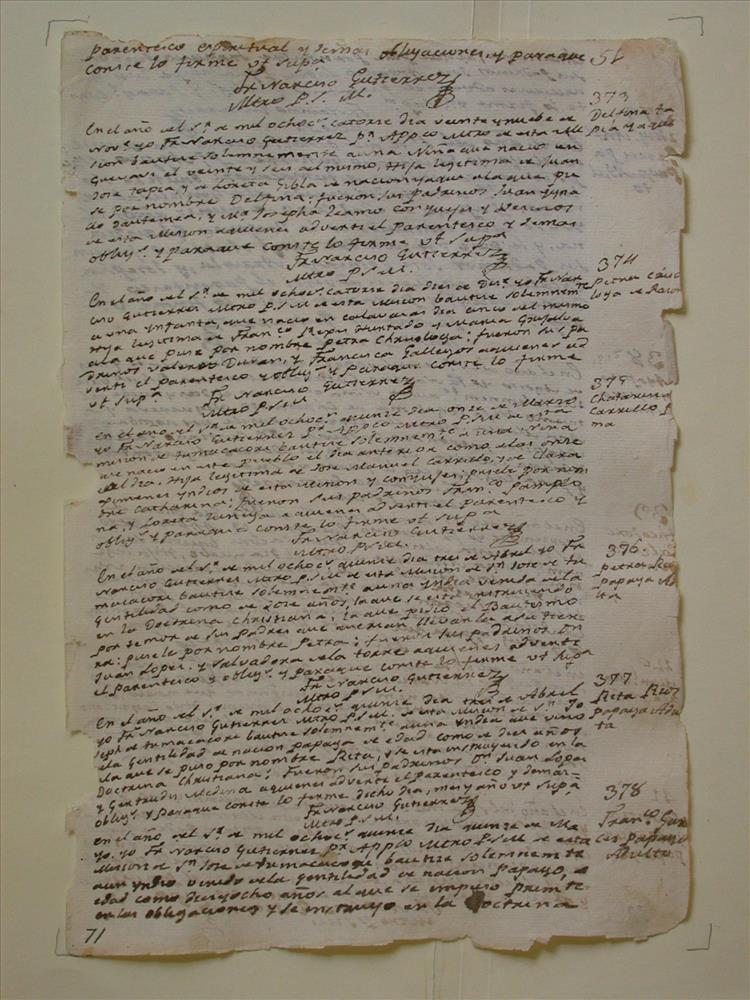 parentesco espiritual y demas obligaciones, y paraque
conste lo firme ut supa
Fr Narciso Gutierrez
Mtro P.S. M.
51
373
Delfina ta
pia yaqui
En el año del Sr. de mil ochocs. catorse dia veinte y nuebe de
Novre. yo Fr Narciso Gutierrez Pr. Appco Mtro de esta Mi
sion bautise solemnemente auna Niña que nacio en
Guevavi el veinte y seis del mismo, Hija legitima de Juan
Jose tapia, y de Loreta de nacion yaque alaque pu
se por nombre Delfina; fueron sus Padrinos Juan Igna
y Ma Josepha conyuges y Vecinos
de esta Mision aquienes adverti el parentesco y demas
obligs. y paraque conste lo firme ut supa
Fr Narciso Gutierrez
Mtro P.S.M.
374
Petra Criso
loga de Razon
En el año del Sr. de mil ochocs. catorse dia dies de Disre. yo Fr Nar
ciso Gutierrez Mtro P.S.M de esta Mision bautise solemnemte
a una Ynfanta, que nacio en calavasas dia cinco del mismo
Hija legitima de Franco Reyes Hurtado y Maria Grijalva
ala que puse por nombre Petra Chrisologa: fueron sus pa
drinos Valerio Duran, y Francisca Gallegos aquienes ad
verti el parentesco y obligs. y Paraque conste lo firme
ut supa
Fr Narciso Gutierrez
Mtro P.S.M
375
Chatarina
Carrillo P
ma
En el año del Sr. de mil ochocs. quinse dia onse de Marzo
yo Fr Narciso Gutierrez Pr. Appco Mtro P.S.M de esta
mision de tumacacori bautise solemnemte. a una niña
que nacio en este pueblo el dia anterior como alas onse
del dia. Hija legitima de Jose Manuel Carrillo, y de Clara
Ximenes yndios de esta Mision y conyuges; pusele por nom
bre Catharina: fueron sus padrinos Franco Pamplo
na, y Loreta aquienes adverti el Parentesco y
obligs. y Paraque conste lo firme ut supa
Fr Narciso Gutierrez
Mtro P.S.M.
376
Petra
Papaga Adu
lta
En el año del Sr. de mil ochocs. quinse dia tres de Abril yo Fr
Narciso Gutierrez Mtro P.S.M de esta Mision de Sn Jose de tu
macacori bautise solemnemte auna yndia venida dela
gentilidad como de dose años, la que se esta instruiendo
en la Doctrina Christiana; la que pidio el Bautismo
por temor de sus Padres que querian llevarla a su tier
ra: pusele por nombre Petra: fueron sus padrinos Dn
Juan Lopes. y Salvadora dela torre aquienes adverti
el parentesco y obligs. y paraque conste lo firme ut supa
Fr Narciso Gutierrez
Mtro P.S.M.
377
Rita
Papaga Adul
ta
En el año del Sr. de mil ochocs. quinse dia tres de Abril
yo Fr Narciso Gutierrez Mtro P.S.M. de esta Mision de Sn Jo
seph de tumacacori bautise solemnemte. auna yndia que vino
dela gentilidad de nacion papaga de edad como de dies años
ala que se puso por nombre Rita, y se esta instruyendo en la
Doctrina Christiana; fueron sus padrinos Dn Juan Lopes
y Gertrudis Medina aquienes adverti el parentesco y demas
obligs. y paraque conste lo firme dicho dia, mes y año ut supa
Fr Narciso Gutierrez
Mtro P.S.M.
378
Franco
papago
Adulto
En el año del Sr. de mil ochocs. quinse dia quinse de Ma
yo. yo Fr Narciso Gutierrez Pr. Appco Mtro P.S.M de esta
Mision de Sn Jose de tumacacori bautise solemnemte
aun yndio venido dela gentilidad de nacion Papago, de
edad como diesyocho años al que se impuso primte
en las obligaciones y se instruyo en la Doctrina
71